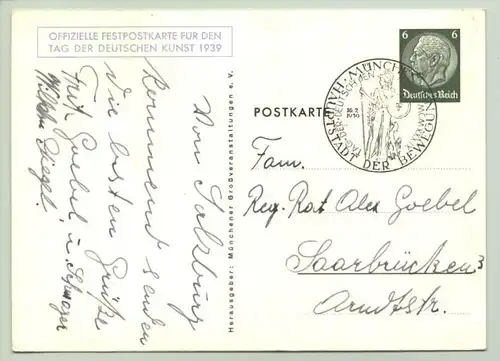 OFFIZIELLE FESTPOSTKARTE FÜR DEN
TAG DER DEUTSCHEN KUNST 1939
Von Salzburg
kommend senden
die besten Grüße
Fritz Goebel u. Schwager
WilhelmZiegel.
Herausgeber: Münchener Großveranstaltungen e.V.
POSTKARTE
MÜNCHEN
HAUPTSTADT DER BEWEGUNG
TAG DER DEUTSCHEN
1939
6 6
Deutsches Reich
Fam.
Reg. Rat Alex Goebel
Saarbrücken 3
Arndtstr.